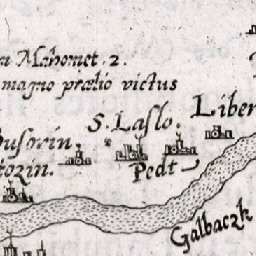 Mahomet. 2.
magno prælio victus
Liber
S. Laslo.
Pedt
Galbaczk